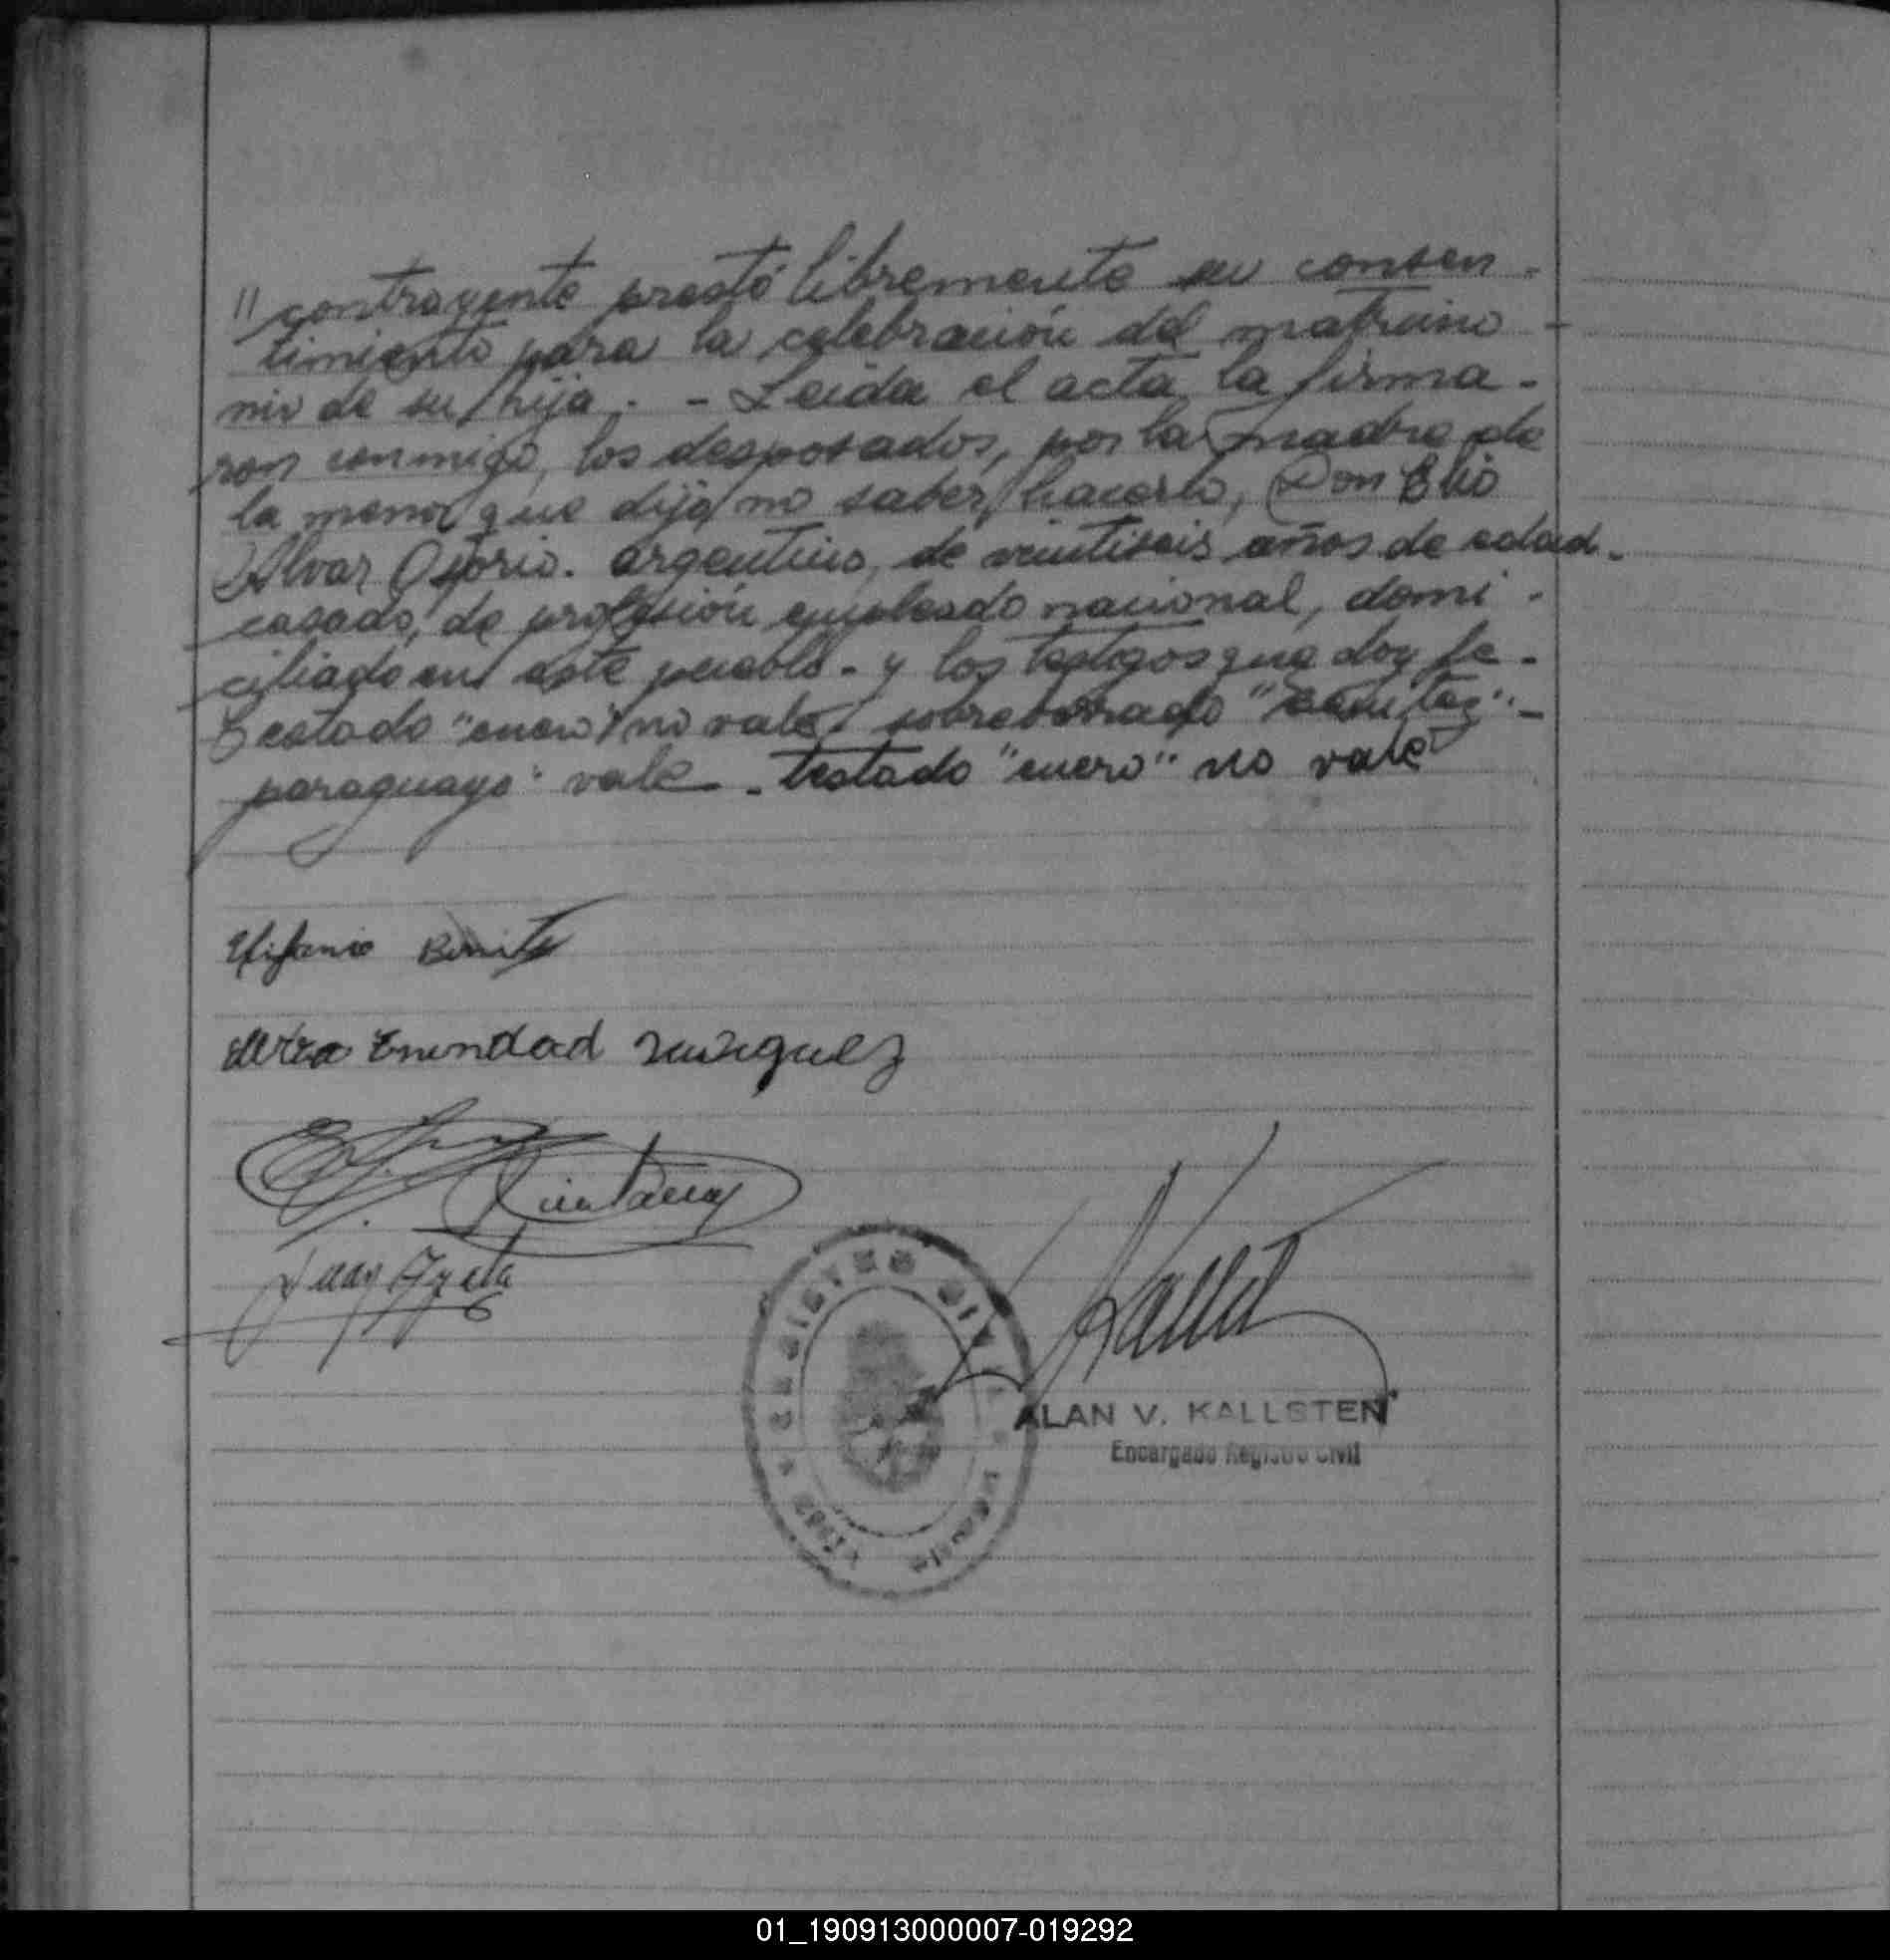 " contrayente prestó libremente su consen-
timiento para la celebración del matrimo-
nio de su hija. - Leída el acta la firma-
ron conmigo, los desposados, por la madre de
la menor que dijo no saber hacerlo, Don Elio
Alvar Osorio. argentino, de veintiseis años de edad-
casado, de profesión empleado nacional, domi-
ciliado en este pueblo - y los testigos que doy fe-
Testado "enero" no vale. sobreborrado
paraguayo" vale - testado "enero" no vale
Epifanio Benitez
Trinidad
Quintana
Juan Ayala
REGISTRO CIVIL
ALAN V. KALLSTEN
Encargado Registro Civil
01_190913000007-019292